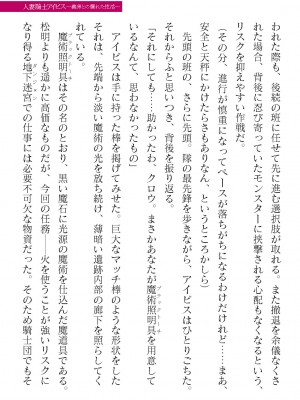 人妻騎士アイビス～義弟との爛れた性活～
われた際も、後続の班に任せて先に進む選択肢が取れる。また撤退を余儀なくさ
れた場合、背後に忍び寄っていたモンスターに挟撃される心配もなくなるという、
リスクを抑えやすい作戦だ。
「その分、進行が慎重になってペースが落ちがちになるわけだけれど……まあ、
安全と天秤にかけたらさもありなん、というところかしら」
先頭の班の、さらに先頭。隊の最先鋒を歩きながら、アイビスはひとりごちた。
それからふと思いつき、背後を振り返る。
「それにしても……助かったわ、クロウ。まさかあなたが魔術照明具を用意して
いるなんて、思わなかったもの」
アイビスは手に持った棒を掲げてみせた。巨大なマッチ棒のような形状をした
それは、先端から淡い魔術の光を放ち続け、薄暗い遺跡内部の廊下を照らしてく
れている。
魔術照明具はその名のとおり、黒い魔石に光源の魔術を仕込んだ魔道具である。
松明よりも遥かに高価なものだが、今回の任務――火を使うことが強いリスクに
なり得る地下迷宮での仕事には必要不可欠な物資だった。そのため騎士団でもそ